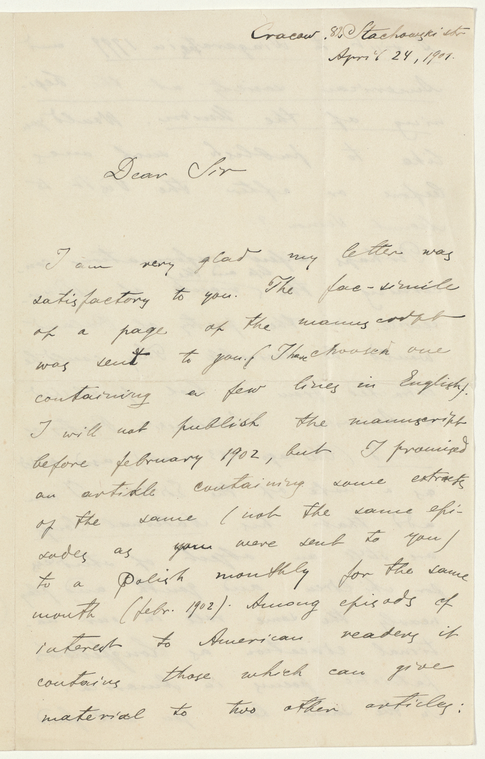 Cracow. Stachowski str
April 24, 1901.
Dear Sir
I am very glad my letter was
satisfactory to you. The fac-simile
of a page of the manuscript
was sent to you. (I choosen one
containing a few lines in English).
I will not publish the manuscript
before february 1902, but I promised
an artikle containing some extrats
of the same (not the same epi-
sodes as were sent to you)
to a Polish monthly for the same
month (febr. 1902). Among episods of
interest to American readers it
contains those which can give
material to two other articles: